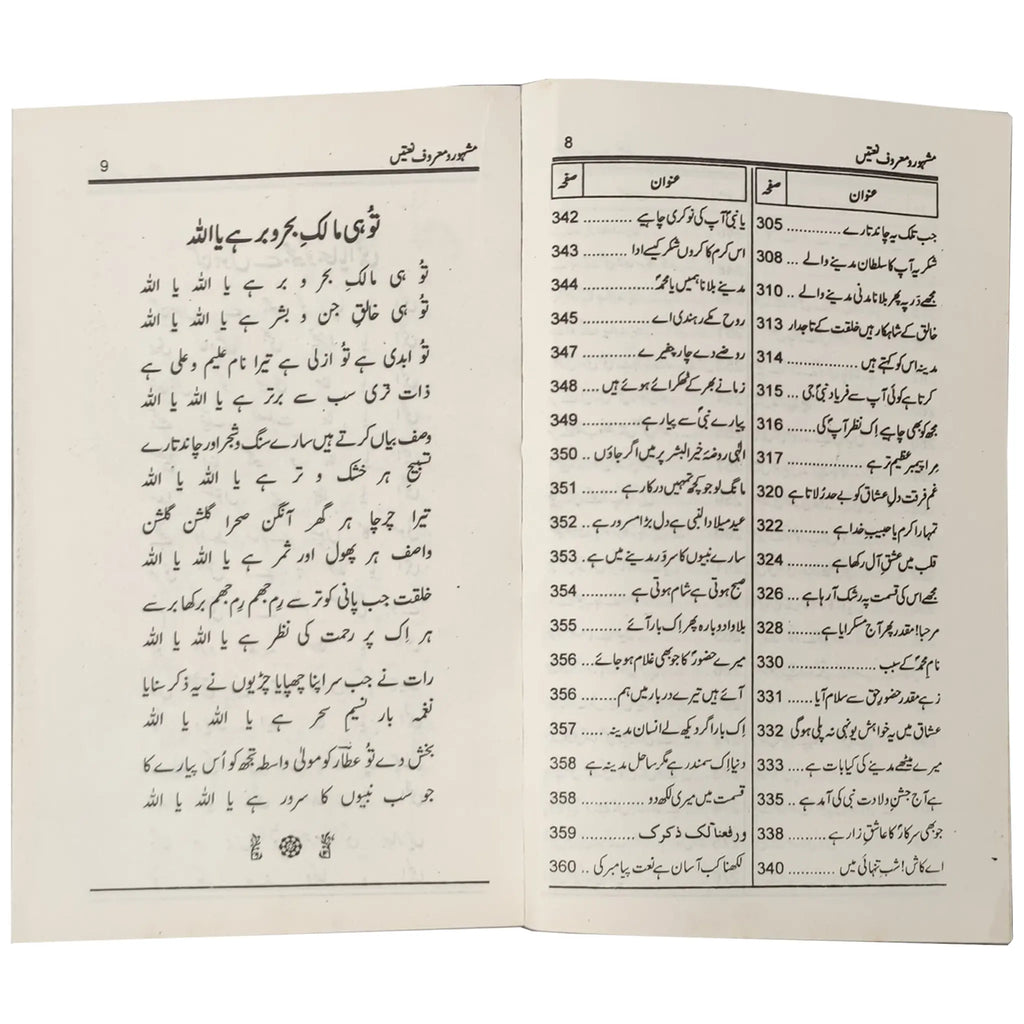 مشہور و معروف نعتیں
8
عنوان صفحہ
جب تلک یہ چاند تارے 305
شکریہ آپ کا سلطان مدینے والے ... 308
مجھے در پہ پھر بلانا مدنی مدینے والے .. 310
خالق کے شاہکار ہیں خلقت کے تاجدار 313
مدینہ اس کو کہتے ہیں ................ 314
کرتا ہے کوئی آپ سے فریاد نبیؐ جی ... 315
مجھ کو بھی چاہیے اِک نظر آپؐ کی ...... 316
مِرا پیمبر عظیم تر ہے ................ 317
غمِ فرقت دلِ عشاق کو بے حد رُلاتا ہے 320
تمہارا کرم یا حبیبِ خدا ہے ........... 322
قلب میں عشقِ آل رکھا ہے ........... 324
مجھے اس کی قسمت پہ رشک آ رہا ہے ... 326
مرحبا! مقدر پھر آج مسکرایا ہے ........ 328
نامِ محمدؐ کے سبب ................... 330
زہے مقدر حضورِ حق سے سلام آیا ...... 331
عشاق میں یہ خواہش یونہی نہ پلی ہوگی 332
میرے میٹھے مدینے کی کیا بات ہے .... 333
ہے آج جشنِ ولادت نبی کی آمد ہے .. 335
جو بھی سرکارؐ کا عاشقِ زار ہے ......... 338
اے کاش! شب تنہائی میں .......... 340
عنوان صفحہ
یا نبیؐ آپ کی نوکری چاہیے ........... 342
اس کرم کا کروں شکر کیسے ادا ........ 343
مدینے بلانا ہمیں یا محمدؐ ............. 344
روح مکے رہندی اے ............... 345
روضے دے چار چفیرے ............. 347
زمانے بھر کے ٹھکرائے ہوئے ہیں .... 348
پیارے نبیؐ سے پیار ہے ............ 349
الٰہی روضۂ خیرالبشر پر میں اگر جاؤں .. 350
مانگ لو جو کچھ تمہیں درکار ہے ....... 351
عید میلادالنبی ہے دل بڑا مسرور ہے .. 352
سارے نبیوں کا سرور مدینے میں ہے . 353
صبح ہوتی ہے شام ہوتی ہے .......... 354
بلا وا دوبارہ پھر اِک بار آئے ......... 355
میرے حضورؐ کا جو بھی غلام ہو جائے ... 356
آئے ہیں تیرے دربار میں ہم ........ 356
اِک بار اگر دیکھ لے انسان مدینہ ..... 357
دنیا اِک سمندر ہے مگر ساحل مدینہ ہے 358
قسمت میں میری لکھ دو ............. 358
ورفعنا لک ذکرک ................ 359
لکھنا کب آسان ہے نعت پیامبر کی .. 360
مشہور و معروف نعتیں
9
تُو ہی مالکِ بحر و بر ہے یا اللہ
تُو ہی مالکِ بحر و بر ہے یا اللہ یا اللہ
تُو ہی خالقِ جن و بشر ہے یا اللہ یا اللہ
تُو ابدی ہے تُو ازلی ہے تیرا نام علیم و علی ہے
ذات تری سب سے برتر ہے یا اللہ یا اللہ
وصف بیاں کرتے ہیں سارے سنگ و شجر اور چاند تارے
تسبیح ہر خشک و تر ہے یا اللہ یا اللہ
تیرا چرچا ہر گھر آنگن صحرا گلشن گلشن
واصف ہر پھول اور ثمر ہے یا اللہ یا اللہ
خلقت جب پانی کو ترسے رم جھم رم جھم برکھا برسے
ہر اِک پر رحمت کی نظر ہے یا اللہ یا اللہ
رات نے جب سر اپنا چھپایا چڑیوں نے یہ ذکر سنایا
نغمہ بار نسیمِ سحر ہے یا اللہ یا اللہ
بخش دے تُو عطارؔ کو مولیٰ واسطہ تجھ کو اُس پیارے کا
جو سب نبیوں کا سرور ہے یا اللہ یا اللہ